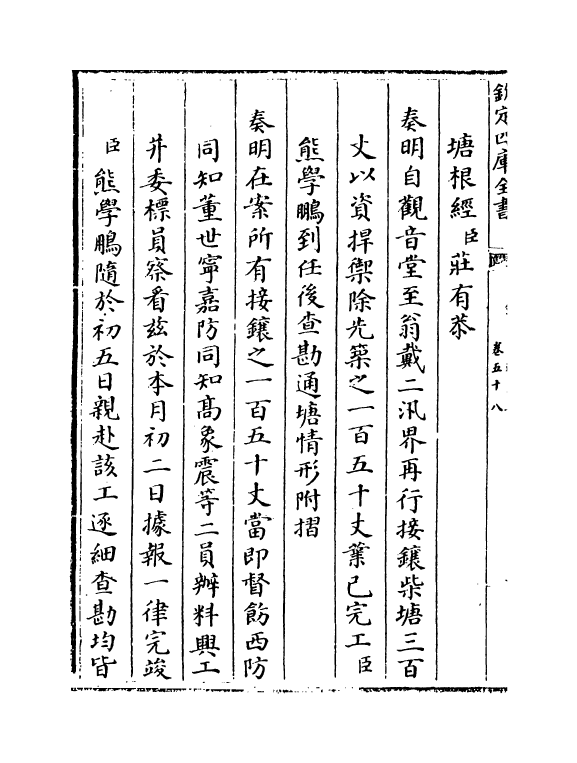 欽定四庫全書
卷五十八
塘根經臣莊有恭
奏明自觀音堂至翁戴二汛界再行接鑲柴塘三百
丈以資捍禦除先築之一百五十丈業已完工臣
熊學鵬到任後查勘通塘情形附摺
奏明在案所有接鑲之一百五十丈當即督飭西防
同知董世寧嘉防同知高象震等二員辦料興工
并委標員察看茲於本月初二日據報一律完竣
臣熊學鵬隨於初五日親赴該工逐細查勘均皆